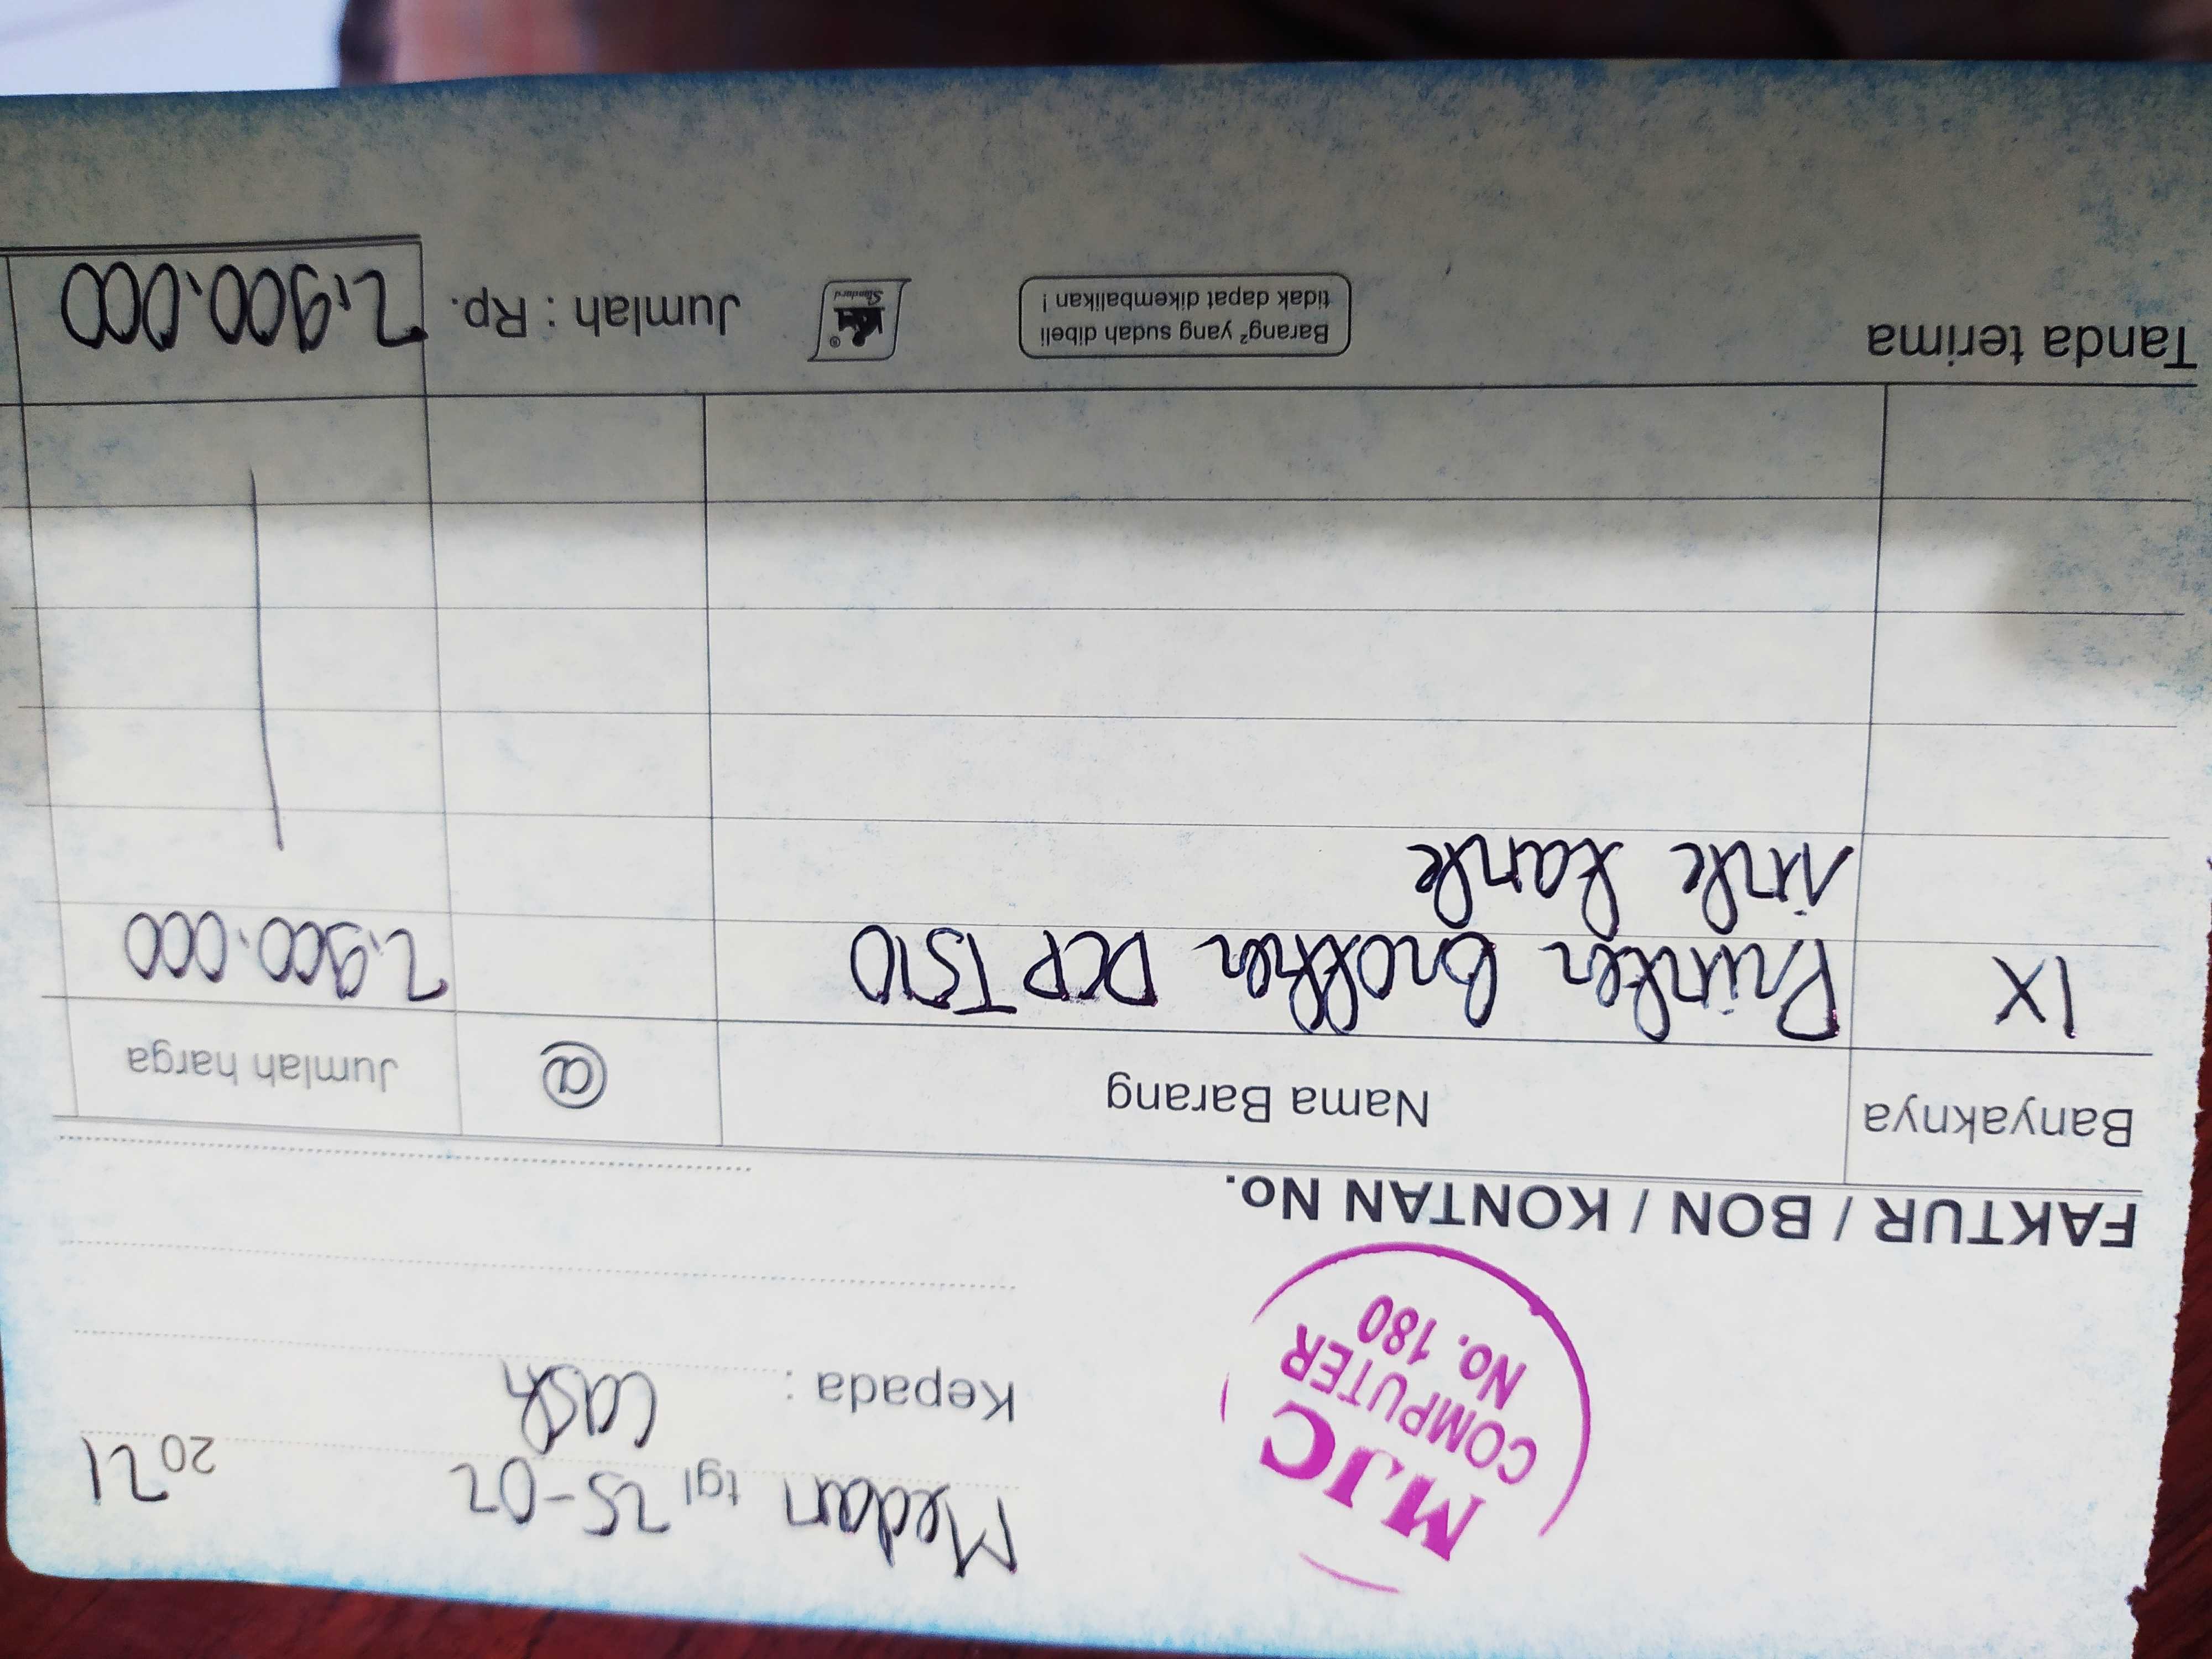 MJC
COMPUTER
No. 180
Medan tgl 25-02 2021
Kepada : Cash
FAKTUR / BON / KONTAN No.
Banyaknya Nama Barang @ Jumlah harga
1X Printer Brother DCP T510 2.900.000
ink tank
Tanda terima
Barang² yang sudah dibeli
tidak dapat dikembalikan !
Standard
Jumlah : Rp. 2.900.000